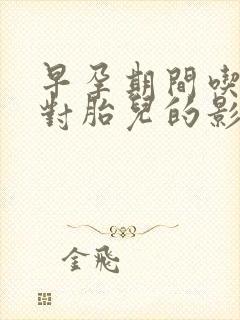 早孕期間喫
對胎兒的影
金飛